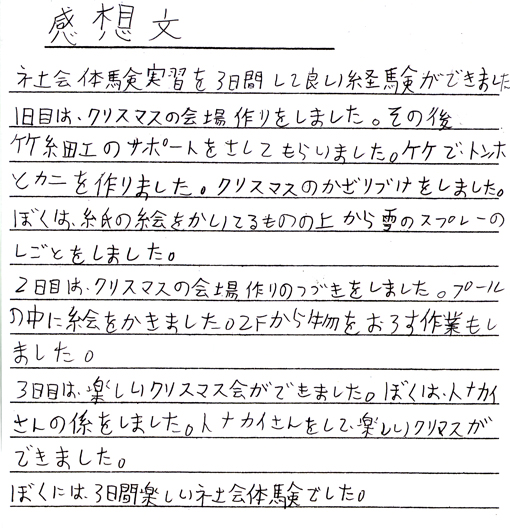 感想文
社会体験実習を3日間して良い経験ができました
1日目は、クリスマスの会場作りをしました。その後
竹細工のサポートをさしてもらいました。竹でトンボ
とカニを作りました。クリスマスのかざりづけをしました。
ぼくは、紙の絵をかいてるものの上から雪のスプレーの
しごとをしました。
2日目は、クリスマスの会場作りのつづきをしました。プール
の中に絵をかきました。2Fから物をおろす作業もし
ました。
3日目は、楽しいクリスマス会ができました。ぼくは、トナカイ
さんの係をしました。トナカイさんをして、楽しいクリマスが
できました。
ぼくには、3日間楽しい社会体験でした。